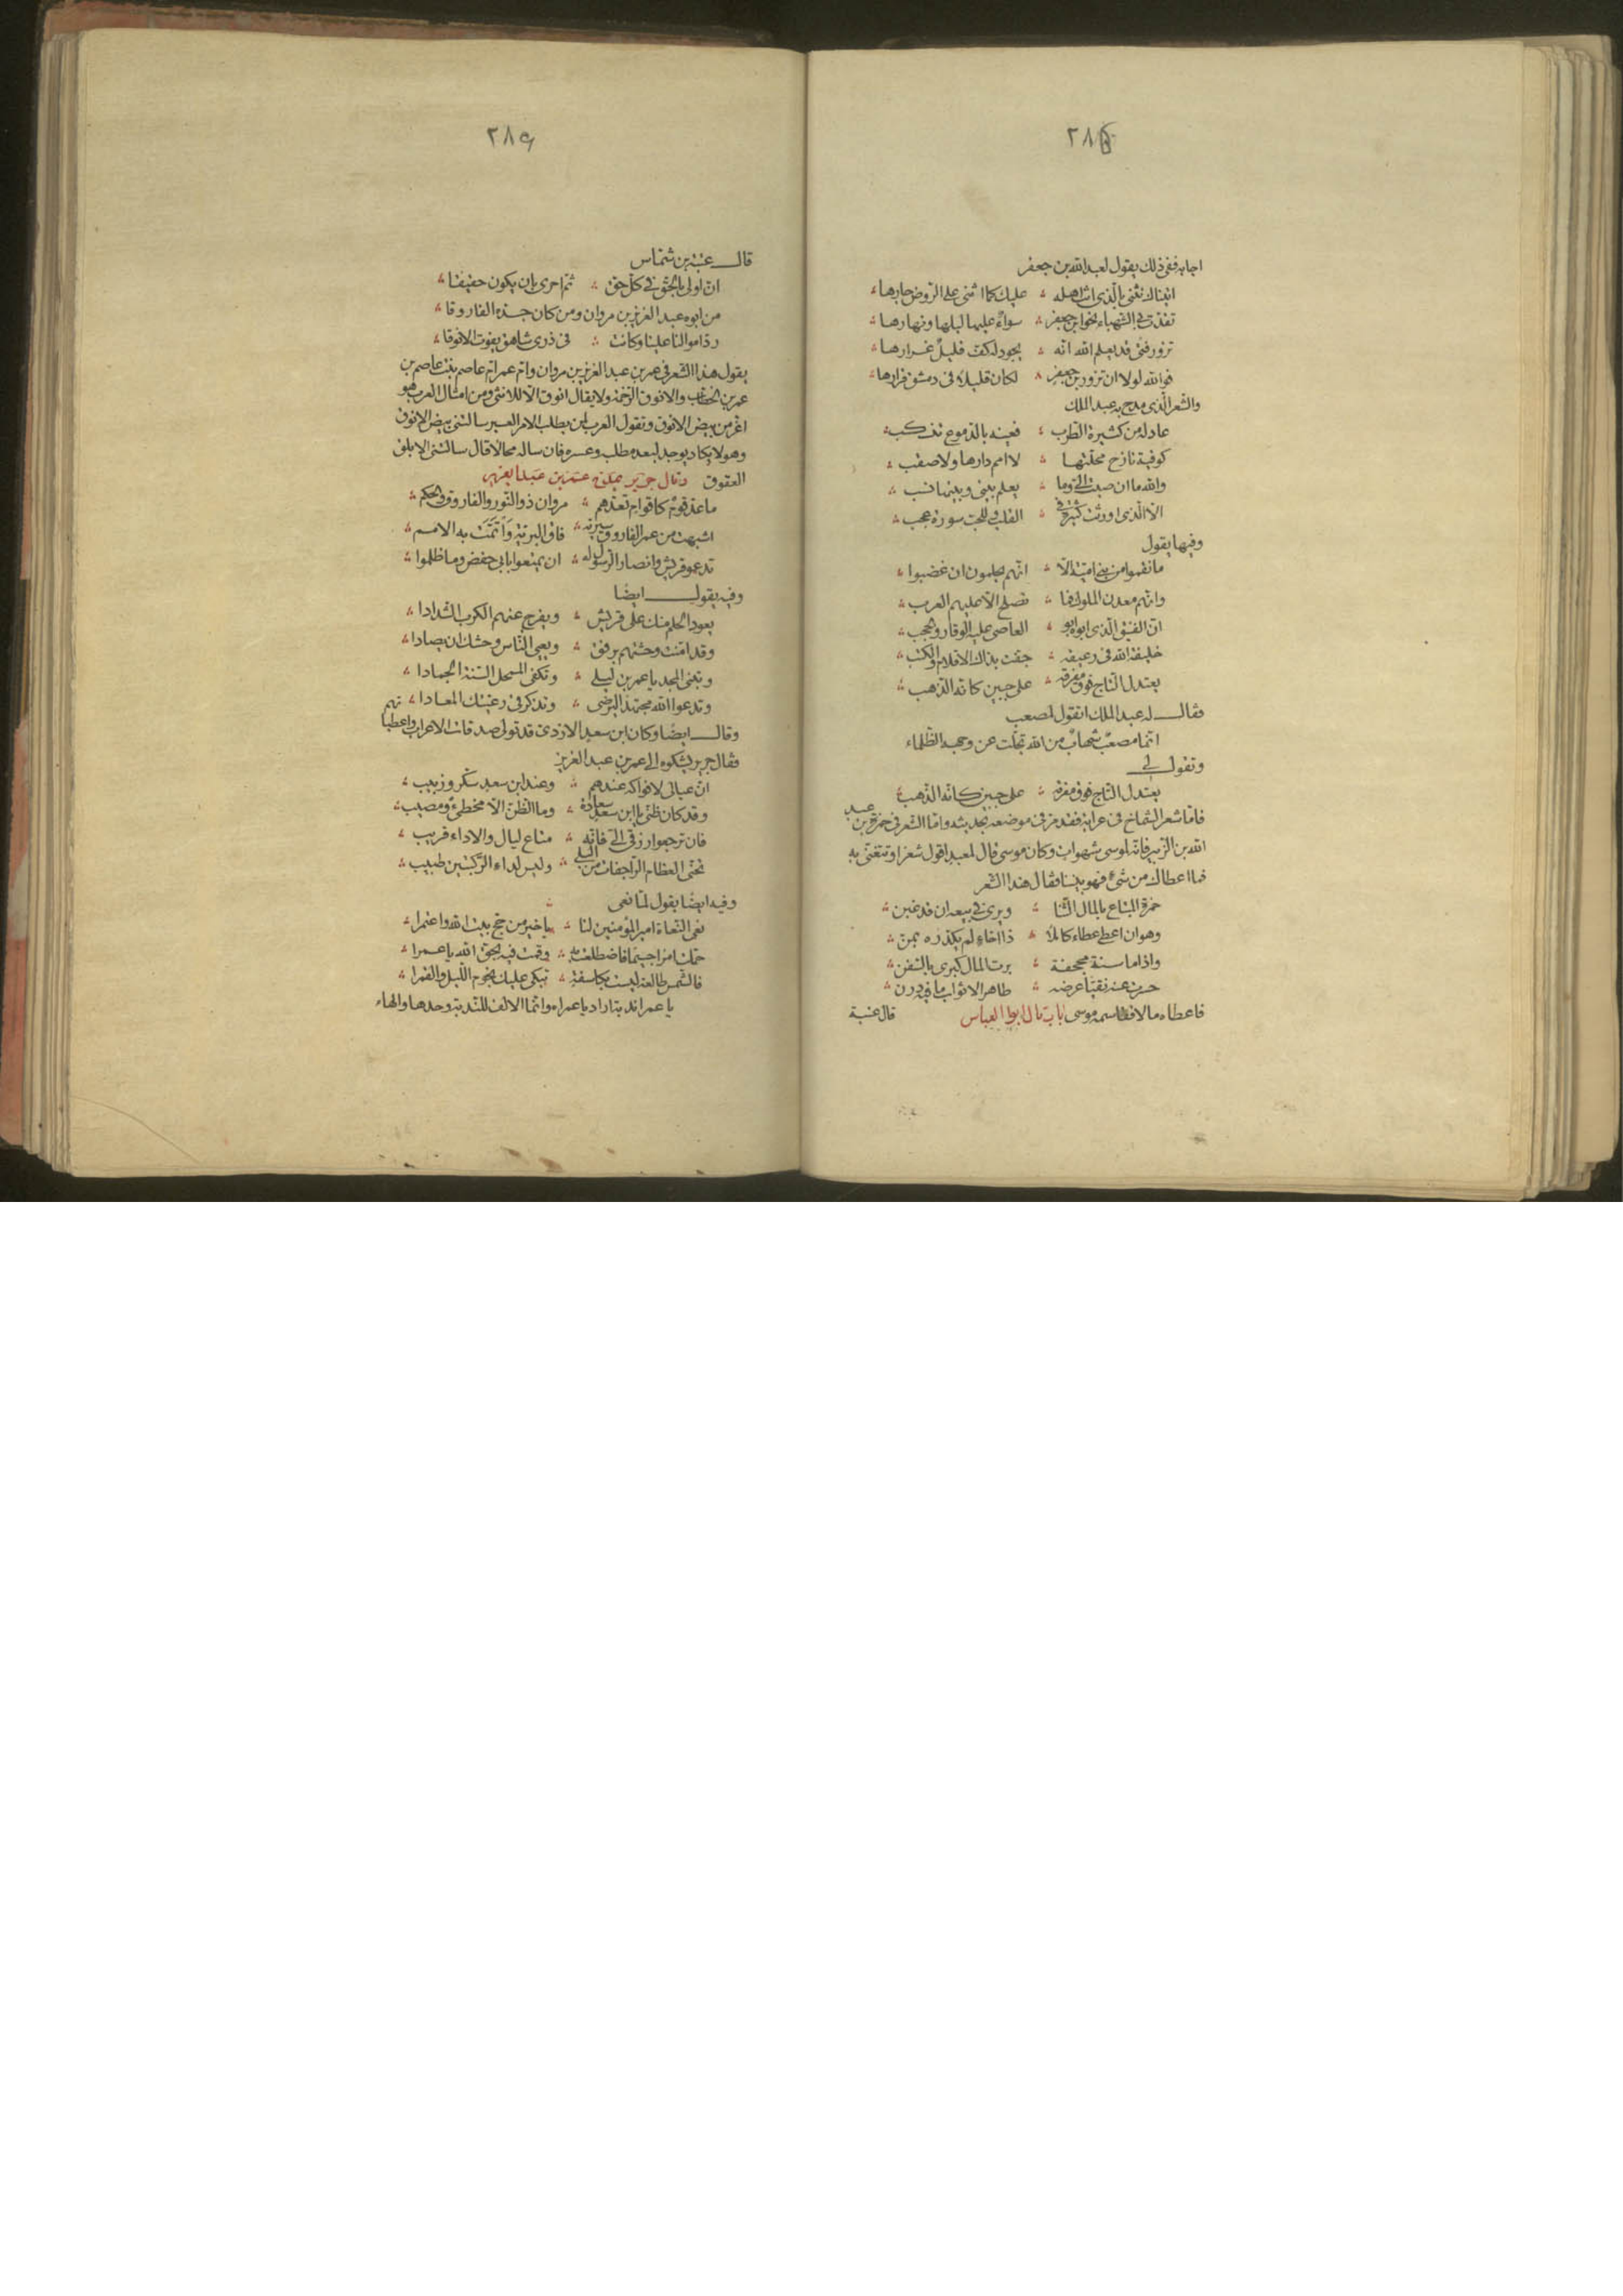 ٢٨٨
اجابه ففى ذلك يقول لعبد الله بن جعفر
اتيناك نثنى بالذى انت اهله ؞ عليك كما اثنى على الروض جارها ؞
تقدت بى الشهباء نحو ابن جعفر ؞ سواء عليها ليلها ونهارها ؞
تزور فتى قد يعلم الله انه ؞ يجود له كف قليل غرارها ؞
فوالله لولا ان تزور بن جعفر ؞ لكان قليلا فى دمشق قرارها ؞
والشعر الذى مدح به عبد الملك
عاد له من كثيرة الطرب ؞ فعينه بالدموع تنسكب ؞
كوفية نازح محلتها ؞ لا امم دارها ولا صقب ؞
والله ما ان صبت الى وما ؞ يعلم بينى وبينها نسب ؞
الا الذى اورثت كثيرة فى ؞ القلب وللحب سورة عجب ؞
وفيها يقول
ما نقموا من بنى امية الا ؞ انهم يحلمون ان غضبوا ؞
وانهم معدن الملوك فما ؞ تصلح الا عليهم العرب ؞
ان الفنيق الذى ابوه ابو ؞ العاصى عليه الوقار والحجب ؞
خليفة الله فى رعيته ؞ جفت بذاك الاقلام والكتب ؞
يعتدل التاج فوق مفرقه ؞ على جبين كانه الذهب ؞
فقال له عبد الملك اتقول لمصعب
انما مصعب شهاب من الله تجلت عن وجهه الظلماء
وتقول لى
يعتدل التاج فوق مفرقه ؞ على جبين كانه الذهب ؞
فاما شعر الشماخ فى عرابة فقد مر فى موضعه بحديثه واما الشعر فى حمزة بن عبد
الله بن الزبير فانه لموسى شهوات وكان موسى قال لمعبد اقول شعرا وتتغنى به
فما اعطاك من شئ فهو بيننا فقال هذا الشعر
حمزة المبتاع بالمال الثنا ؞ ويرى فى بيعه ان قد غبن ؞
وهو ان اعطى عطاء كاملا ؞ ذا اخاء لم يكدره بمن ؞
واذا ما سنة مجحفة ؞ برت المال كبرى بالسفن ؞
حسرت عنه نقيا عرضه ؞ طاهر الاثواب ما فيه درن ؞
فاعطاه مالا فقاسمه موسى باب قال ابو العباس قال عتبة
٢٨٩
قال عتبة بن شماس
ان اولى بالحق فى كل حق ؞ ثم احرى بان يكون حقيقا ؞
من ابوه عبد العزيز بن مروان ومن كان جده الفاروقا ؞
رد اموالنا علينا وكانت ؞ فى ذرى شاهق يفوت الانوقا ؞
يقول هذا الشعر فى عمر بن عبد العزيز بن مروان وام عمر ام عاصم بنت عاصم بن
عمر بن الخطاب والانوق الرخمة ولا يقال انوق الا للانثى ومن امثال العرب هو
اعز من بيض الانوق وتقول العرب لمن يطلب الامر العسير سالتنى بيض الانوق
وهو لا يكاد يوجد لبعد مطلبه وعسره فان ساله محالا قال سالتنى الابلق
العقوق وقال جرير يمدح عمر بن عبد العزيز
ما عد قوم كاقوام تعدهم ؞ مروان ذو النور والفاروق والحكم ؞
اشبهت من عمر الفاروق سيرته ؞ فاق البرية وأتمت به الامم ؞
تدعو قريش وانصار الرسول له ؞ ان يمتعوا بابى حفص وما ظلموا ؞
وفيه يقول ايضا
يعود الحلم منك على قريش ؞ ويفرج عنهم الكرب الشدادا ؞
وقد امنت وحشتهم برفق ؞ ويعيى الناس وحشك ان يصادا ؞
وتبنى المجد يا عمر بن ليلى ؞ وتكفى الممحل السنة الجمادا ؞
وتدعوا الله مجتهدا ليرضى ؞ وتذكر فى رعيتك المعادا ؞
وقال ايضا وكان ابن سعد الازدى قد تولى صدقات الاعراب واعطياتهم
فقال جرير يشكوه الى عمر بن عبد العزيز
ان عيالى لا فواكه عندهم ؞ وعند ابن سعد سكر وزبيب ؞
وقد كان ظنى بابن سعد سعادة ؞ وما الظن الا مخطئ ومصيب ؞
فان ترجعوا رزقى الى فانه ؞ متاع ليال والاداء قريب ؞
تحنى العظام الراجفات من البلى ؞ وليس لداء الركبتين طبيب ؞
وفيه ايضا يقول لما نعى
نعى النعاة امير المؤمنين لنا ؞ يا خير من حج بيت الله واعتمرا ؞
حملت امرا جسيما فاضطلعت به ؞ وقمت فيه بحق الله يا عمرا ؞
فالشمس طالعة ليست بكاسفة ؞ تبكى عليك نجوم الليل والقمرا ؞
يا عمرا ندبة اراد يا عمراه وانما الالف للندبة وحدها والهاء